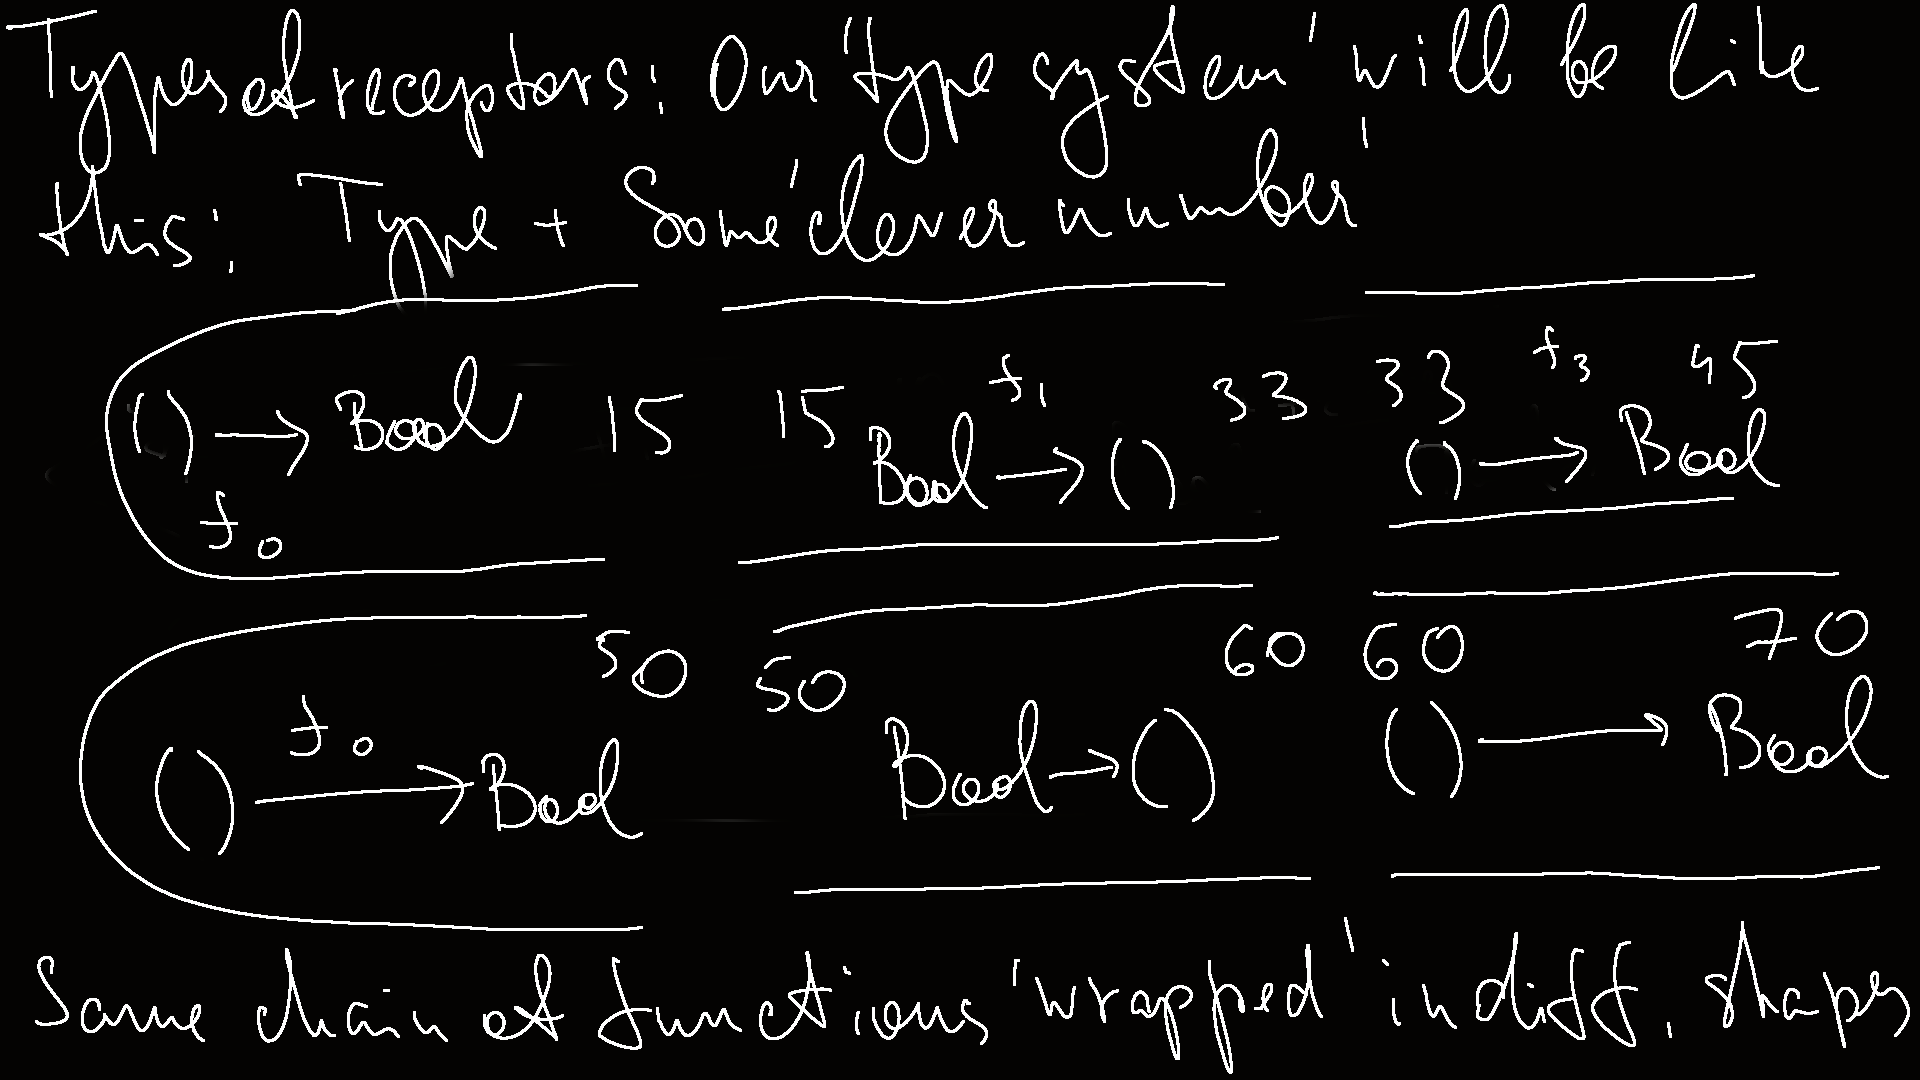 Types of receptors: Our 'type system' will be like
this: Type + Some 'clever number'
() → Bool 15 15 Bool → () 33 33 () → Bool 45
f0 f1 f3
50 50 60 60 70
() → Bool Bool → () () → Bool
f0
Same chain of functions 'wrapped' in diff. shapes